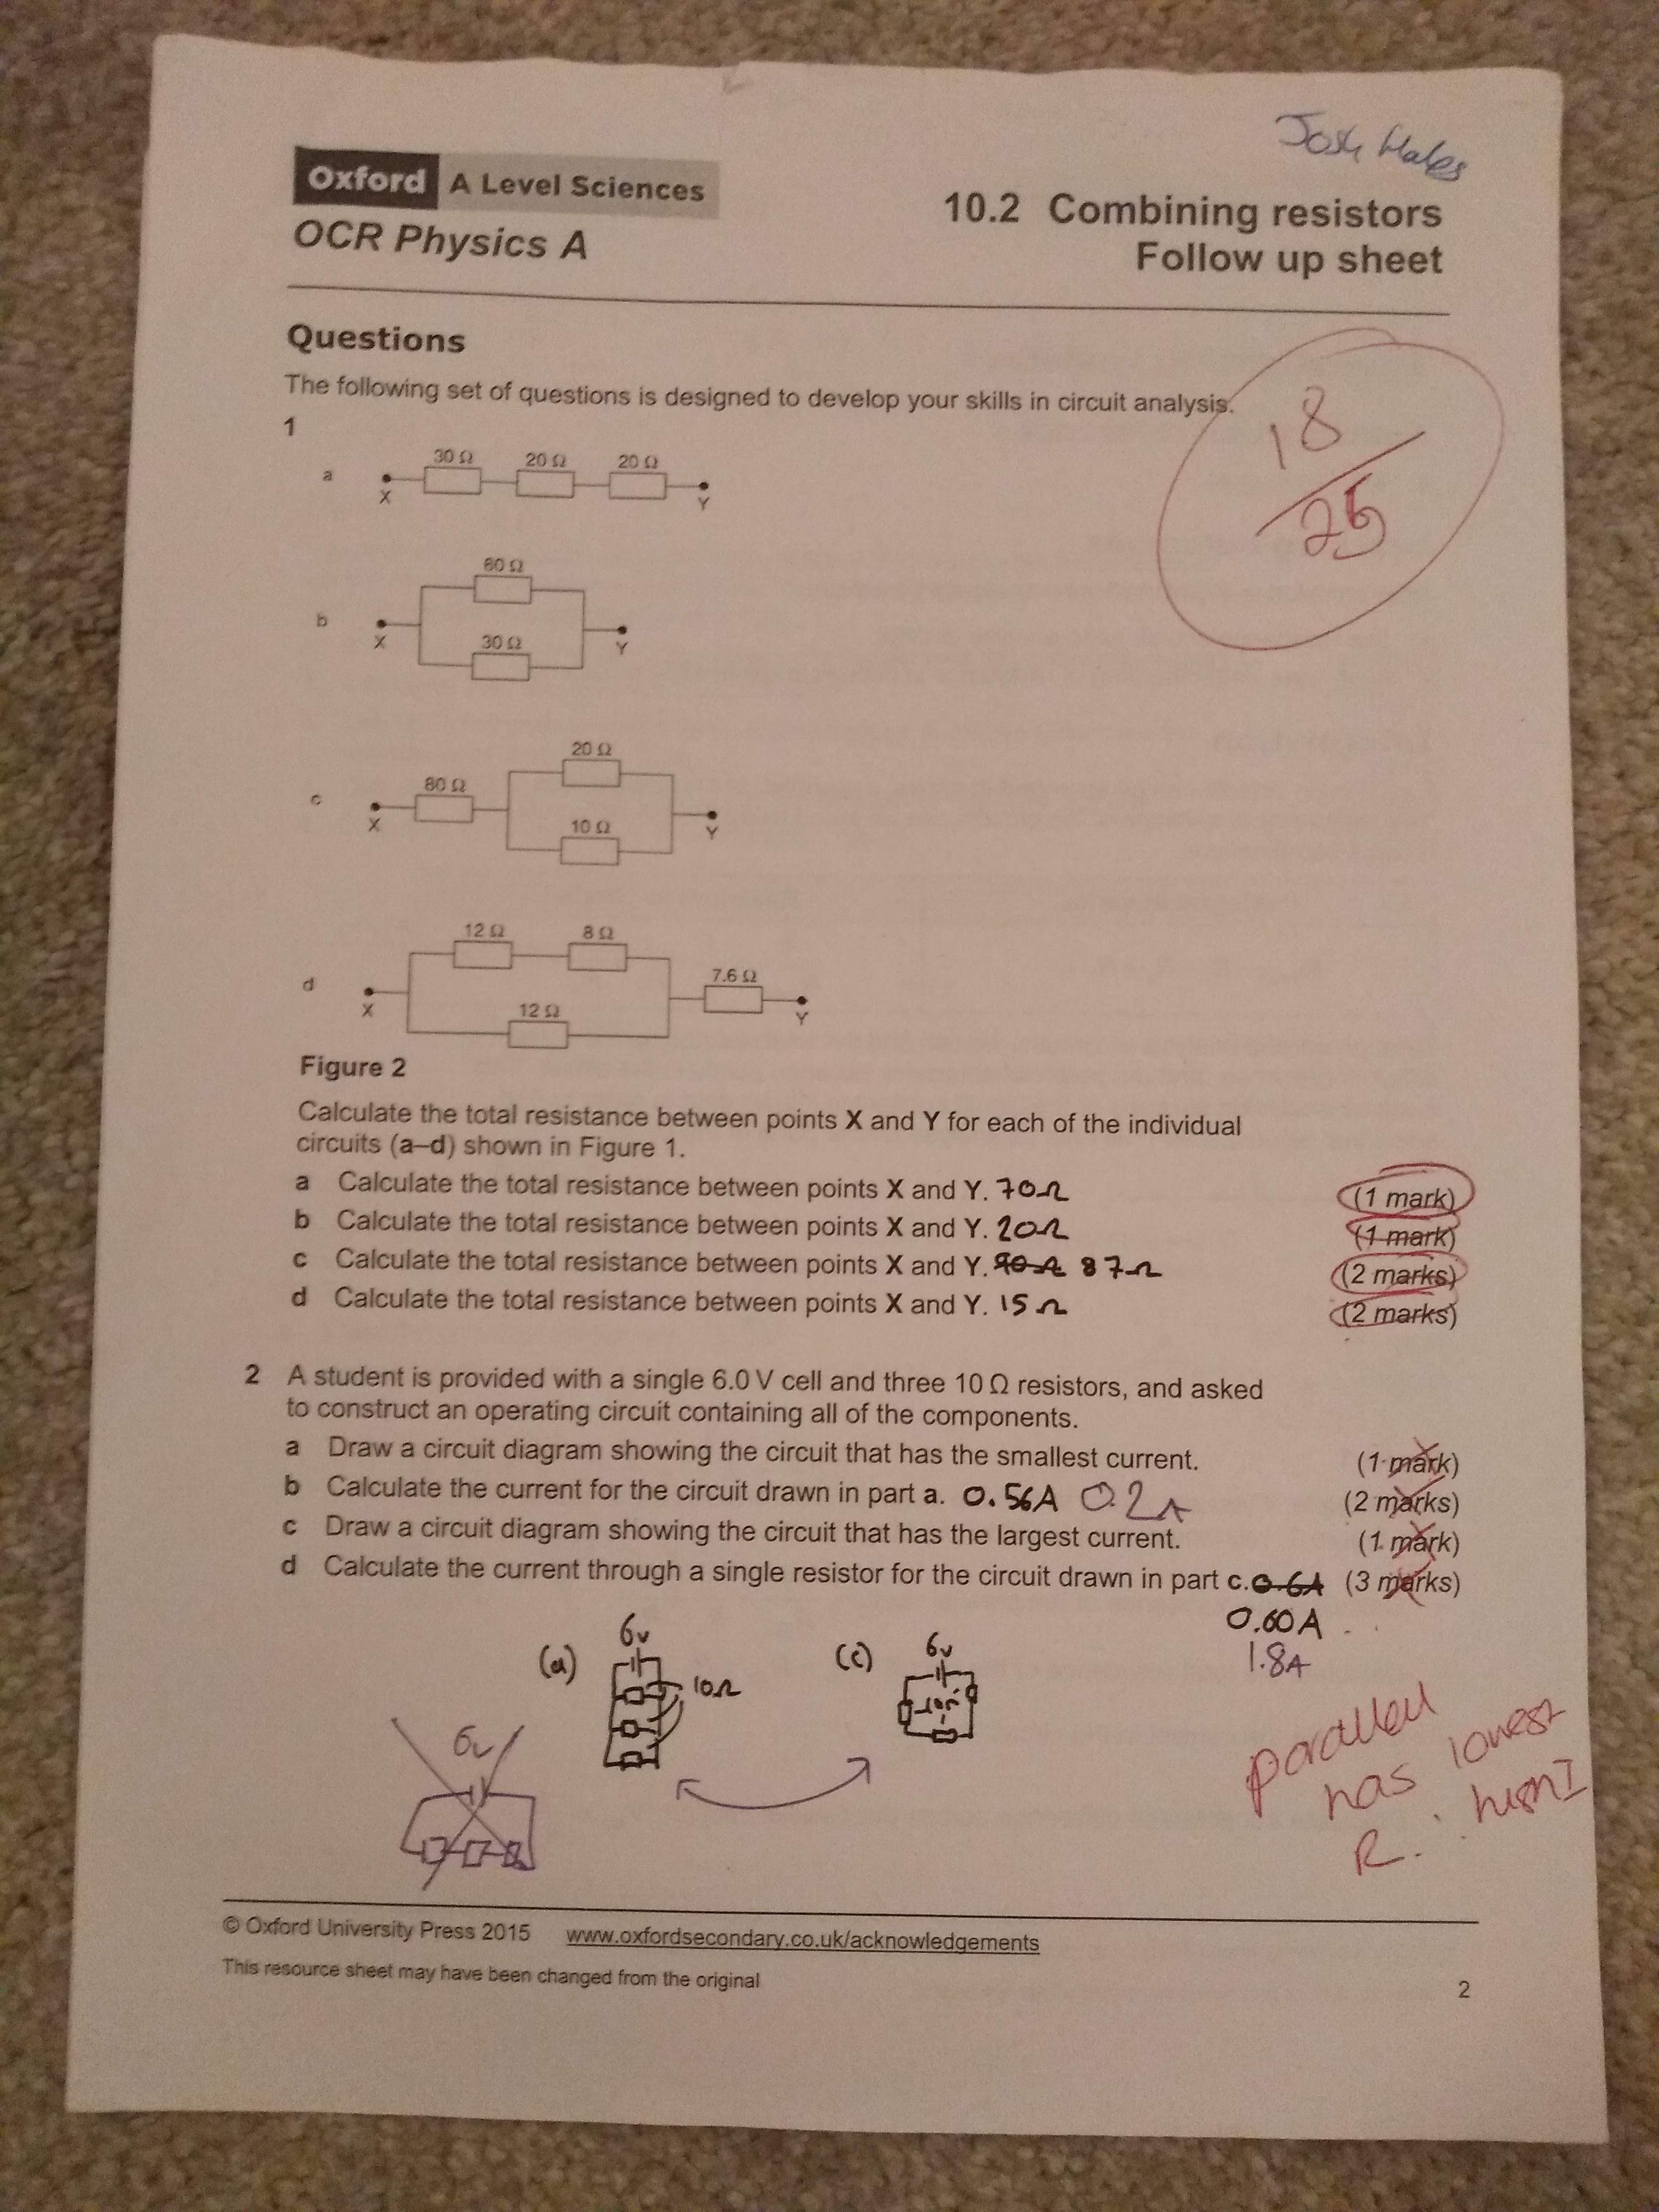 Josh Hales
Oxford A Level Sciences
OCR Physics A
10.2 Combining resistors
Follow up sheet
Questions
The following set of questions is designed to develop your skills in circuit analysis.
18
25
1
a
30 Ω 20 Ω 20 Ω
X Y
b
60 Ω
30 Ω
X Y
c
20 Ω
80 Ω
10 Ω
X Y
d
12 Ω 8 Ω
7.6 Ω
12 Ω
X Y
Figure 2
Calculate the total resistance between points X and Y for each of the individual
circuits (a–d) shown in Figure 1.
a Calculate the total resistance between points X and Y. 70Ω (1 mark)
b Calculate the total resistance between points X and Y. 20Ω (1 mark)
c Calculate the total resistance between points X and Y. 90Ω 87Ω (2 marks)
d Calculate the total resistance between points X and Y. 15Ω (2 marks)
2 A student is provided with a single 6.0 V cell and three 10 Ω resistors, and asked
to construct an operating circuit containing all of the components.
a Draw a circuit diagram showing the circuit that has the smallest current. (1 mark)
b Calculate the current for the circuit drawn in part a. 0.56A 0.2A (2 marks)
c Draw a circuit diagram showing the circuit that has the largest current. (1 mark)
d Calculate the current through a single resistor for the circuit drawn in part c. 0.6A (3 marks)
0.60A
1.8A
(a) 6v 10Ω
(c) 6v 10Ω
6v
parallel
has lowest
R. high I
© Oxford University Press 2015 www.oxfordsecondary.co.uk/acknowledgements
This resource sheet may have been changed from the original
2